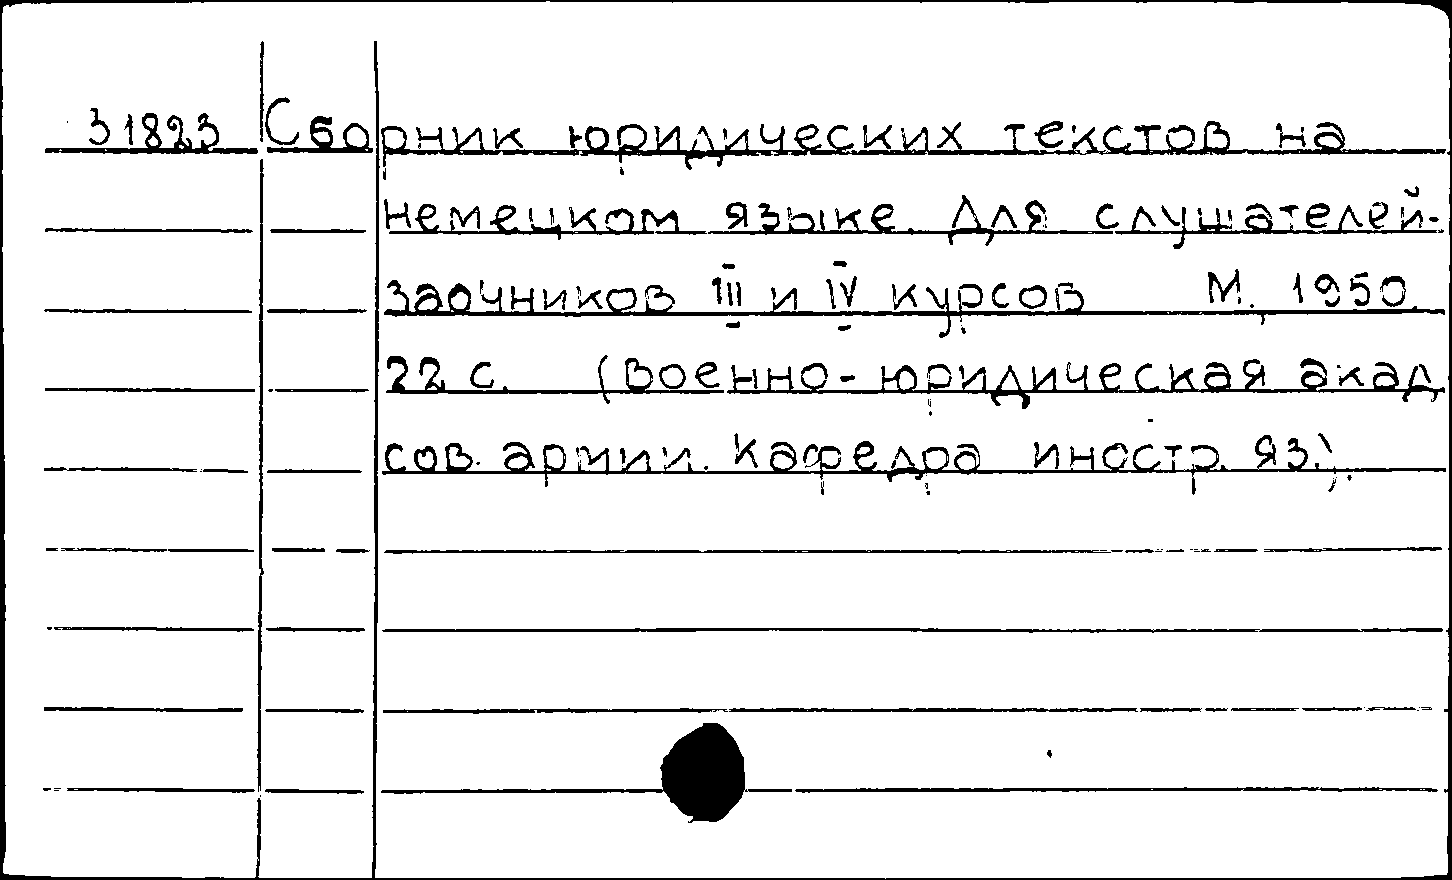 31823 Сборник юридических текстов на
немецком языке. Для слушателей-
заочников III и IV курсов М., 1950.
22 с. (Военно-юридическая акад.
сов. армии. Кафедра иностр. яз.).